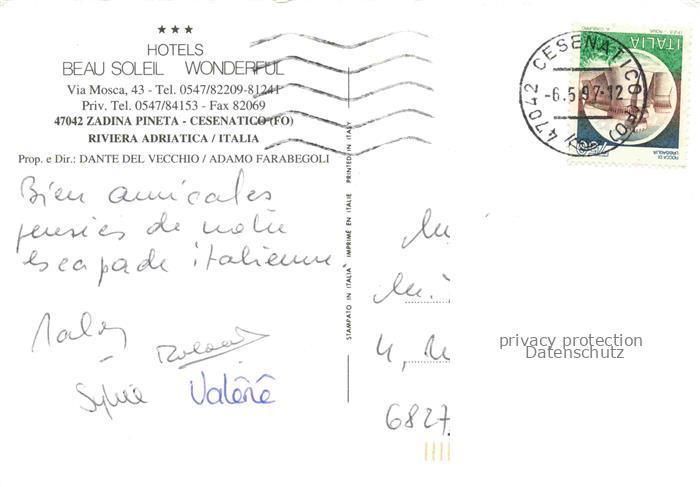 ★★★
HOTELS
BEAU SOLEIL WONDERFUL
Via Mosca, 43 - Tel. 0547/82209-81241
Priv. Tel. 0547/84153 - Fax 82069
47042 ZADINA PINETA - CESENATICO (FO)
RIVIERA ADRIATICA / ITALIA
Prop. e Dir.: DANTE DEL VECCHIO / ADAMO FARABEGOLI
Bien amicales
pensées de notre
escapade italienne
Roland
Sylvie Valérie
STAMPATO IN ITALIA IMPRIMÉ EN ITALIE PRINTED IN ITALY
47042 CESENATICO (FO)
-6.5.97-12
ITALIA
ROCCA DI
URBISAGLIA
750
4,
6827
privacy protection
Datenschutz